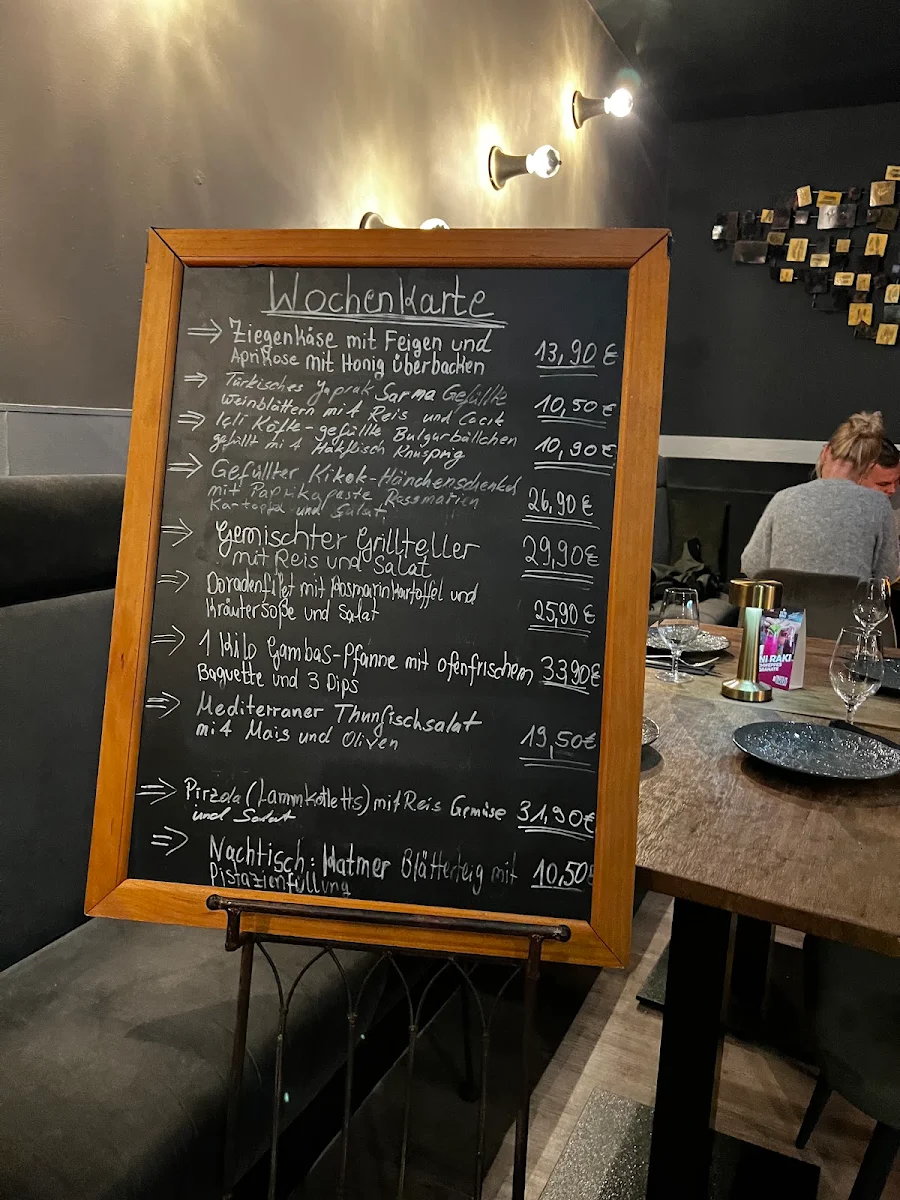 Wochenkarte
⇒ Ziegenkäse mit Feigen und
Aprikose mit Honig überbacken 13,90 €
⇒ Türkisches Yaprak Sarma Gefüllte
weinblättern mit Reis und Cacik 10,50€
⇒ Icli Köfte - gefüllte Bulgurbällchen
gefüllt mit Hakfleisch Knusprig 10,90€
⇒ Gefüllter Kikok-Hänchenschenkel
mit Paprikapaste Rossmarien
Kartoffel und Salat 26,90 €
⇒ Gemischter Grillteller
mit Reis und Salat 29,90€
⇒ Doradenfilet mit Rosmarinkartoffel und
Kräutersoße und Salat 25,90 €
⇒ 1 Kilo Gambas-Pfanne mit ofenfrischem 33,90€
Baguette und 3 Dips
⇒ Mediterraner Thunfischsalat
mit Mais und Oliven 19,50€
⇒ Pirzola (Lammkotletts) mit Reis Gemüse 31,90€
und Salat
⇒ Nachtisch: Katmer Blätterteig mit 10,50€
Pistazienfüllung
NI RAKI